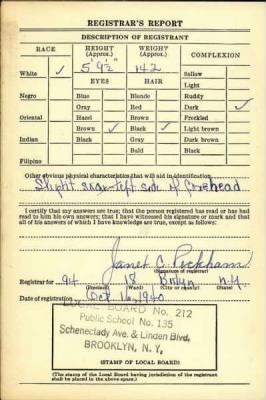 REGISTRAR'S REPORT
DESCRIPTION OF REGISTRANT
RACE HEIGHT (Approx.) WEIGHT (Approx.) COMPLEXION
White ✓ 5' 9½" 142 Sallow
EYES HAIR Light
Negro Blue Blonde Ruddy
Gray Red Dark ✓
Oriental Hazel Brown Freckled
Brown ✓ Black ✓ Light brown
Indian Black Gray Dark brown
Bald Black
Filipino
Other obvious physical characteristics that will aid in identification
Slight scar left side of forehead
I certify that my answers are true; that the person registered has read or has had
read to him his own answers; that I have witnessed his signature or mark and that
all of his answers of which I have knowledge are true, except as follows:
Janet C. Peckham
(Signature of registrar)
Registrar for 94 18 Bklyn N.Y.
(Precinct) (Ward) (City or County) (State)
Date of registration Oct 16, 1940
LOCAL BOARD No. 212
Public School No. 135
Schenectady Ave. & Linden Blvd.
BROOKLYN, N. Y.
(STAMP OF LOCAL BOARD)
(The stamp of the Local Board having jurisdiction of the registrant
shall be placed in the above space.)